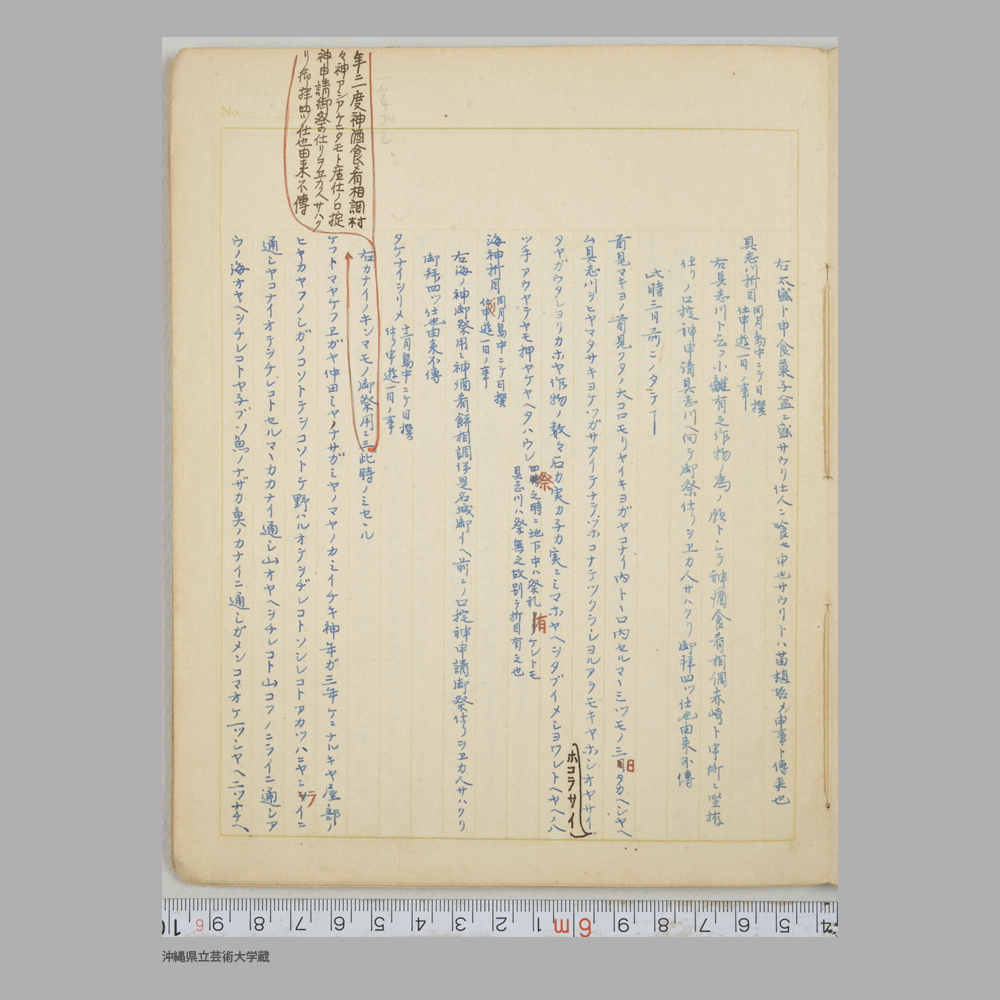 右太盛ト申食菓子盆ニ盛サウリ仕人ニ喰セ申也サウリトハ苗植始メ申事ト傳来也
具志川折目 同月島中ニテ日撰 仕申遊一日ノ事
右具志川ト云フ小離有之作物ノ為ノ願トシテ神酒食肴相調赤崎ト申所ニ
仕リノロ掟神申請具志川ヘ向テ御祭仕ラシヱカ人サハクリ御拝四ツ仕也由来不傳
此時三月前ニノタテー
首見マキヨノ首見クタノ大コロモリヤイキヨガヤコナイ内トーロ内セルマーミツモノ三日タカヘシヤヘ
ム具志川ヂヒヤマタサキヨケツガサアイテナデヅホコナテツクラシヨルアラモキヤホシオヤサイ
ホコラサイ
タヤガウタレヨリカホヤ作物ノ数々石カ実カ子カ実ニミマホヤヘシタブイメシヨワレトヘヤヘハ
ツチアウヤテヤモ押ヤケヤヘタハウレ 四祭之時ニ地下中ハ祭礼有ケレトモ 具志川ハ祭無之故別ニ折目有之也
海神折目 同月島中ニテ日撰 仕申遊一日ノ事
右海ノ神御祭用ニ神酒肴餅相調伊是名城御イヘ前ニノロ掟神申請御祭仕ラシヱカ人サハクリ
御拝四ツ仕也由来不傳
タケナイシリメ 十二月島中ニテ日撰 仕リ申遊一日ノ事
年二度神酒食肴相調村
々神アシアケニタモト座仕ノロ掟
神申請御祭仕リヲヱカ人サハク
リ御拝四ツ仕也由来不傳
右カナイノキンマモノ御祭用ニ此時ノミセール
ケフトマヤケフヱガヤ仲田ミヤノナサガミヤノマヤノカミイチキ神年ガ三年ケニナルキヤ屋部ノ
ヒヤカヤフノシガノコソトテシコソトテ野ハルオテシヂレコトソシレコトアカツハニヤニライニ
通シヤコナイオテシヂレコトセルマーカカナイ通シ山オヤヘシヂレコト山コフノニライニ通シア
ウノ海オヤヘシヂレコトヤ子ブソ魚ノナザカ魚ノカナイニ通シガメンコマオケ一ツシヤヘニツナチヘ
沖縄県立芸術大学蔵